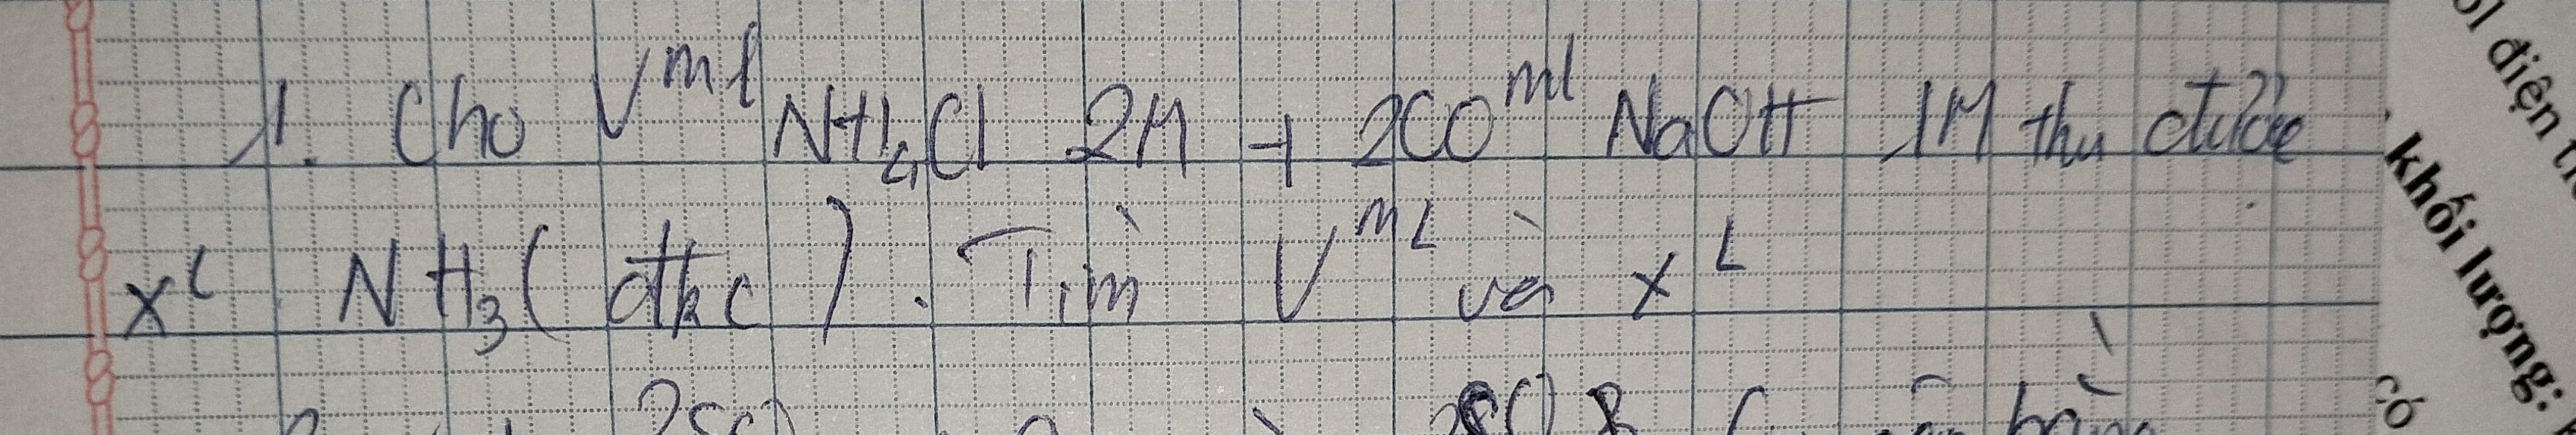 1. Cho V ml NH₄Cl 2M + 200 ml NaOH 1M thu được
x L NH₃ (đkc). Tìm V mL và x L
điện
khối lượng:
có